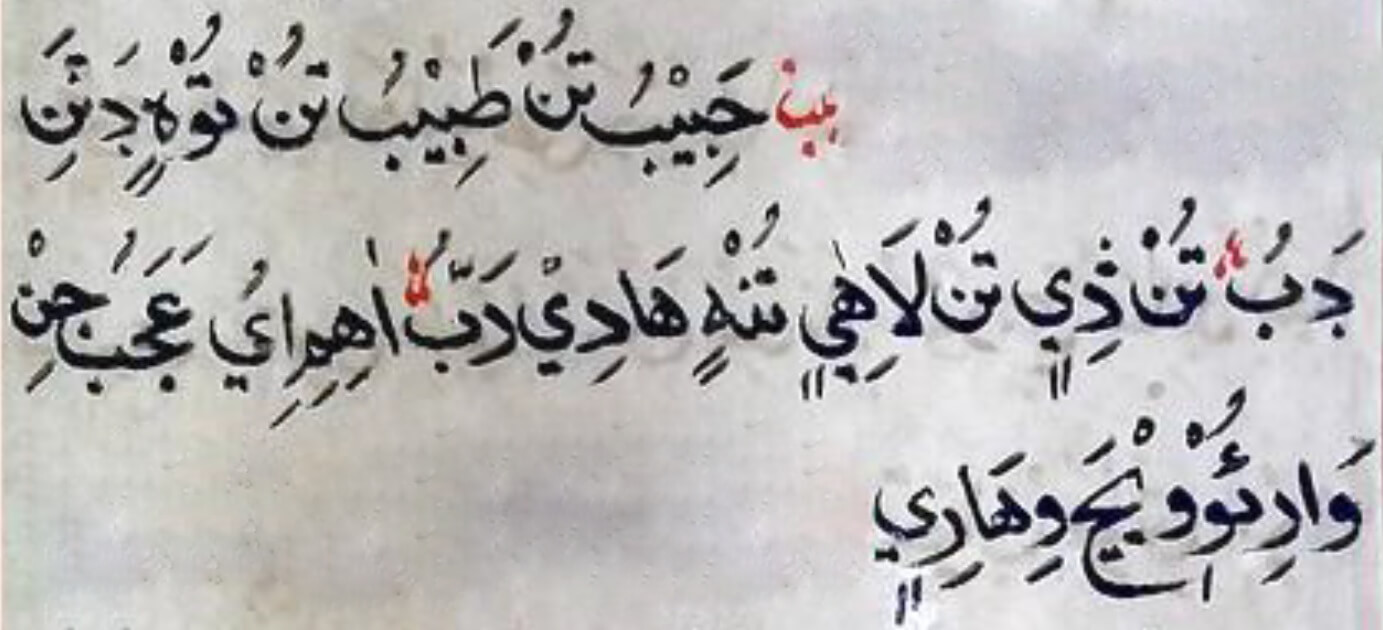 بب حَبِيْبُ تُنْ طَبِيْبُ تُنْ تُوْهٍ دَنَنِ
دَبُ تُنْ ذِيٍ تُنْ لَاهِيٍ تُنْهٍ هَادِيْ رَبُّ اٰهِمِ اِيُ عَجَبُ جِنْ
وَارِئُوْ وِيْجَ وِهَارِيٍ